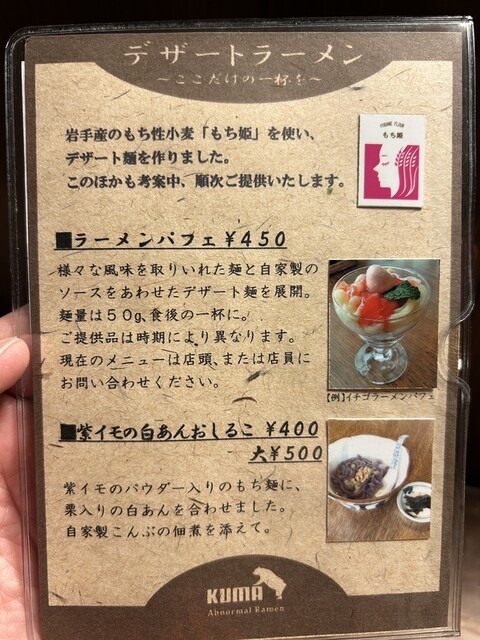 デザートラーメン
～ここだけの一杯を～
岩手産のもち性小麦「もち姫」を使い、
デザート麺を作りました。
このほかも考案中、順次ご提供いたします。
もち姫
■ラーメンパフェ ¥450
様々な風味を取りいれた麺と自家製の
ソースをあわせたデザート麺を展開。
麺量は50g、食後の一杯に。
ご提供品は時期により異なります。
現在のメニューは店頭、または店員に
お問い合わせください。
【例】イチゴラーメンパフェ
■紫イモの白あんおしるこ ¥400
大¥500
紫イモのパウダー入りのもち麺に、
栗入りの白あんを合わせました。
自家製こんぶの佃煮を添えて。
KUMA
Abnormal Ramen